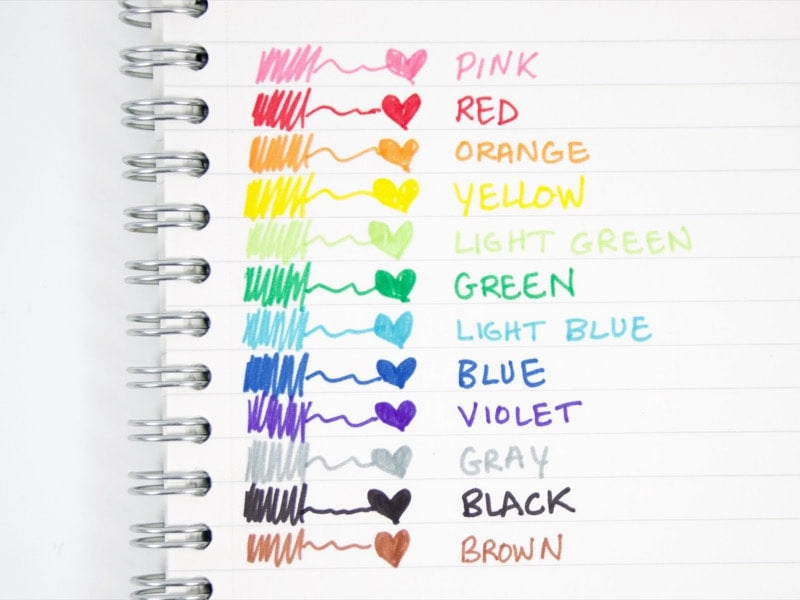 PINK
RED
ORANGE
YELLOW
LIGHT GREEN
GREEN
LIGHT BLUE
BLUE
VIOLET
GRAY
BLACK
BROWN